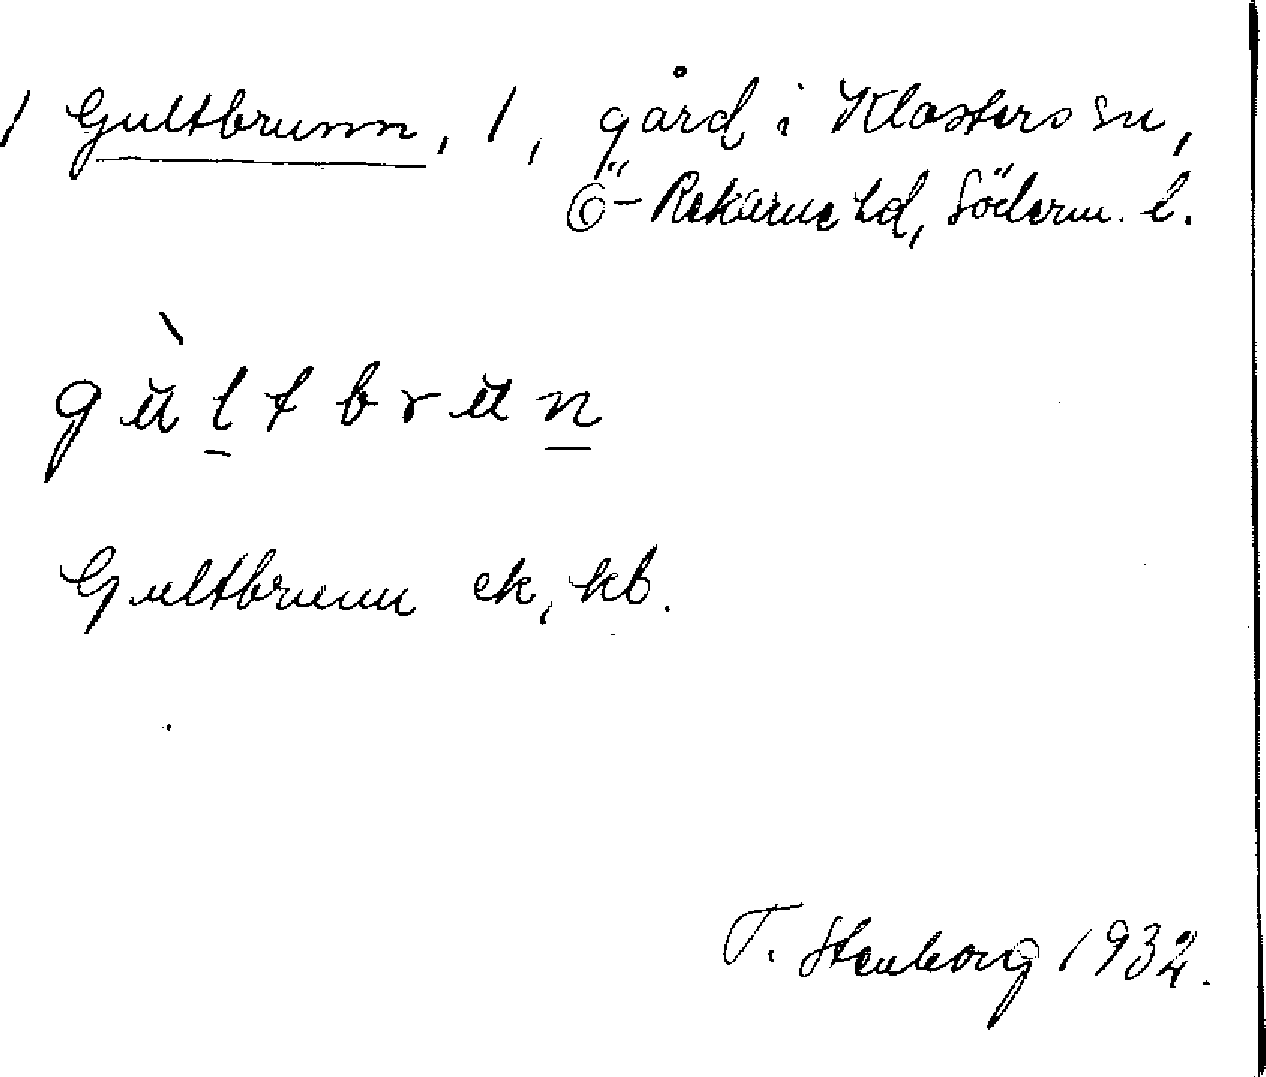 / Gultbrunn, 1, gård i Klosters sn,
Ö-Rekarne hd, Söderm. l.
gù̀ltbrun
Gultbrunn ek, kb.
T. Stenborg 1932.